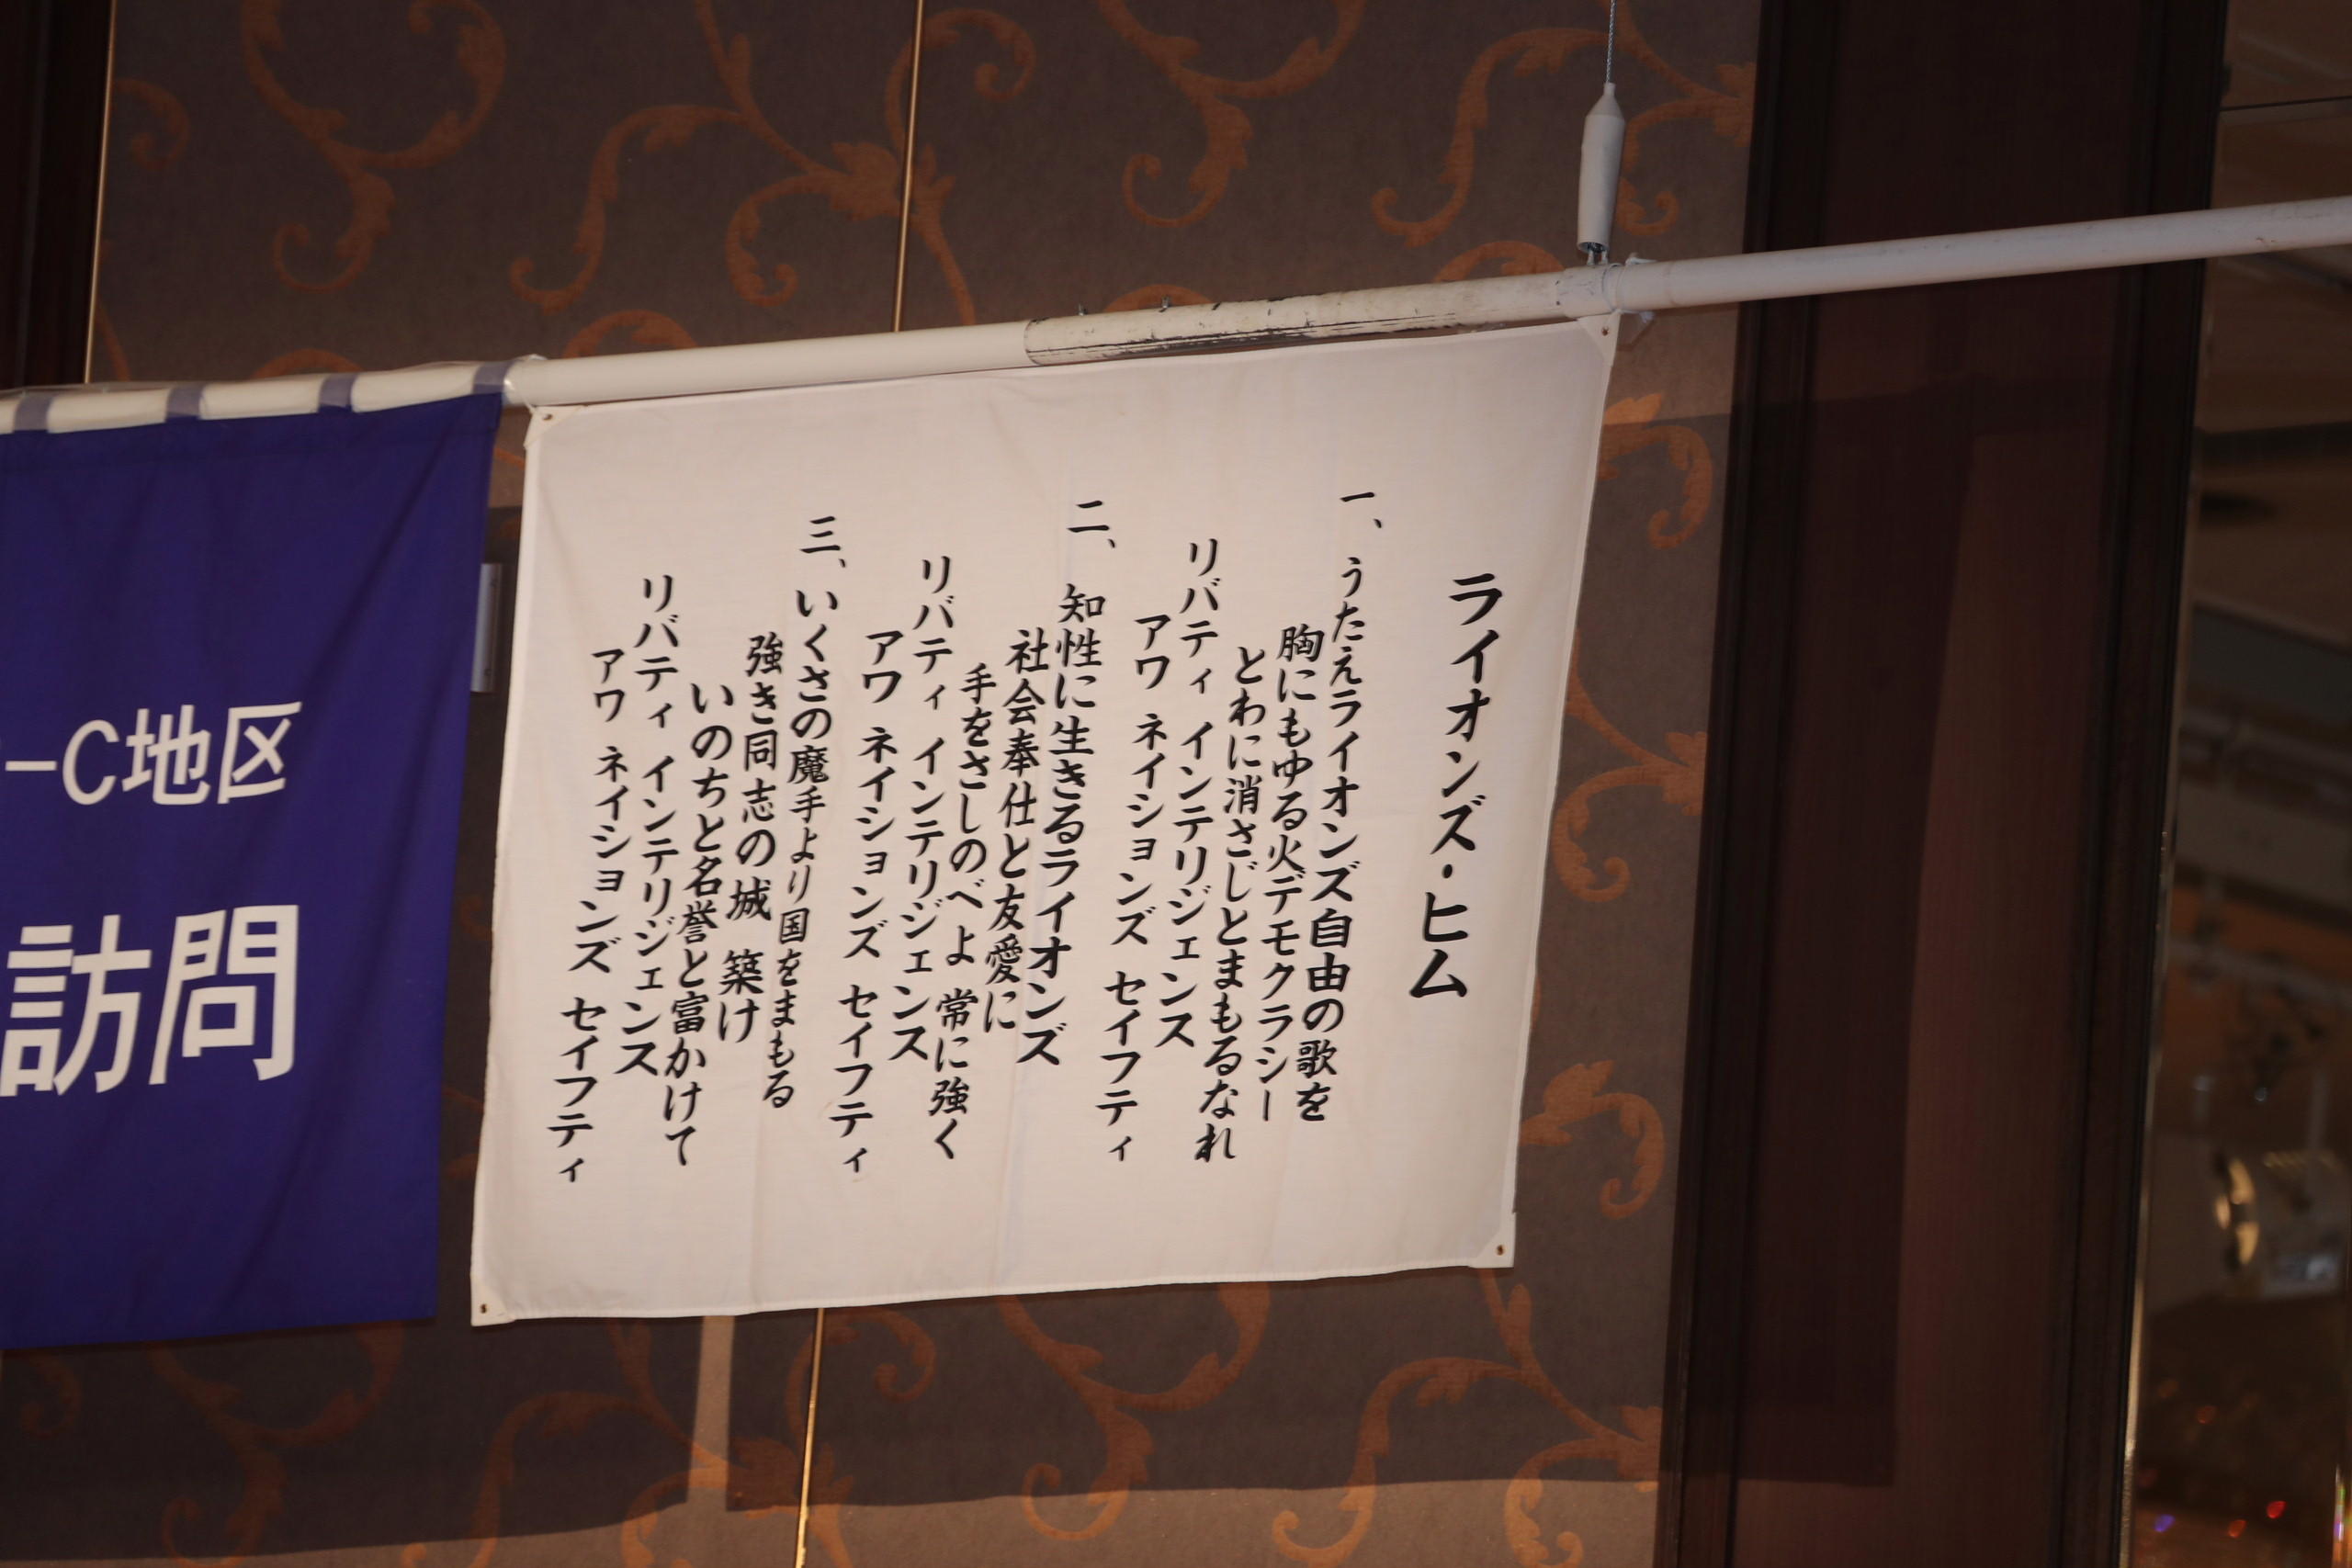 ライオンズ・ヒム
一、うたえライオンズ自由の歌を
胸にもゆる火デモクラシー
とわに消さじとまもるなれ
リバティ インテリジェンス
アワ ネイションズ セイフティ
二、知性に生きるライオンズ
社会奉仕と友愛に
手をさしのべよ 常に強く
リバティ インテリジェンス
アワ ネイションズ セイフティ
三、いくさの魔手より国をまもる
強き同志の城 築け
いのちと名誉と富かけて
リバティ インテリジェンス
アワ ネイションズ セイフティ
-C地区
訪問